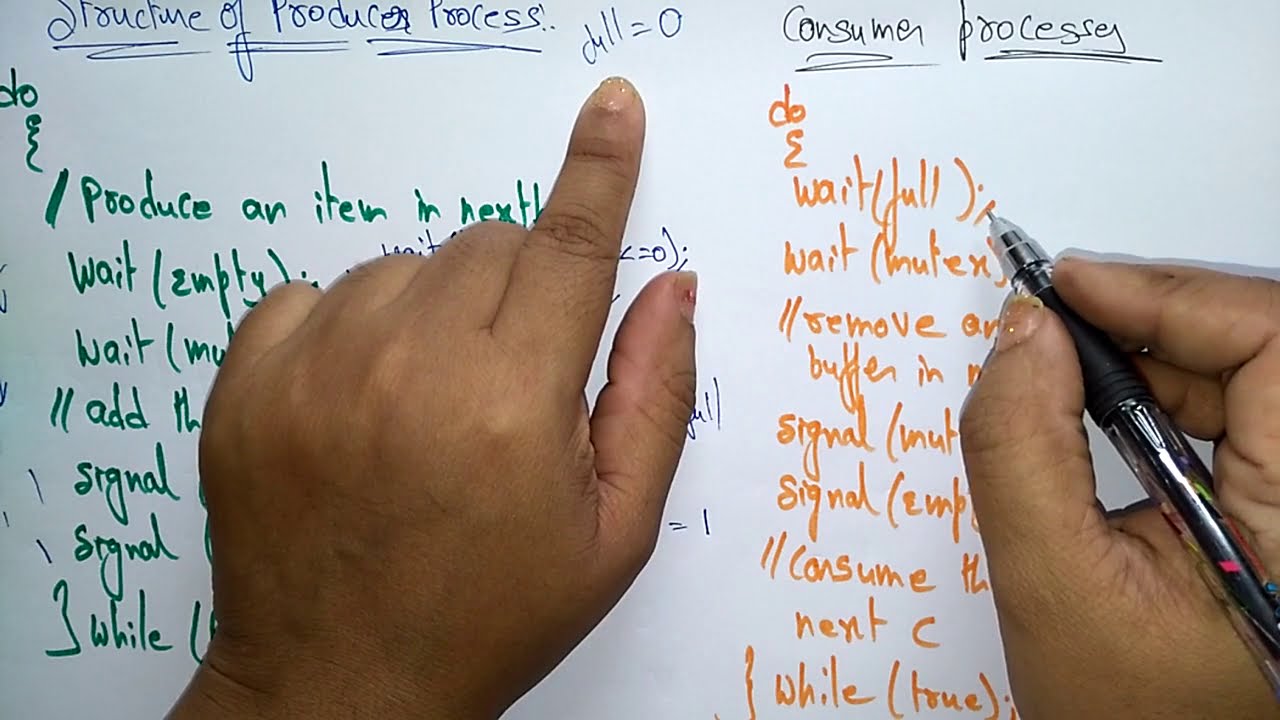 Structure of Producer Process:
full = 0
do
{
/ Produce an item in
wait (Empty);
<=0);
wait (mut
// add th
full
signal (
signal (
= 1
} while (
Consumer processes
do
{
wait(full);
wait (mutex)
// remove an
buffer in n
signal (mut
signal (Empty
// Consume th
next c
} while (true);